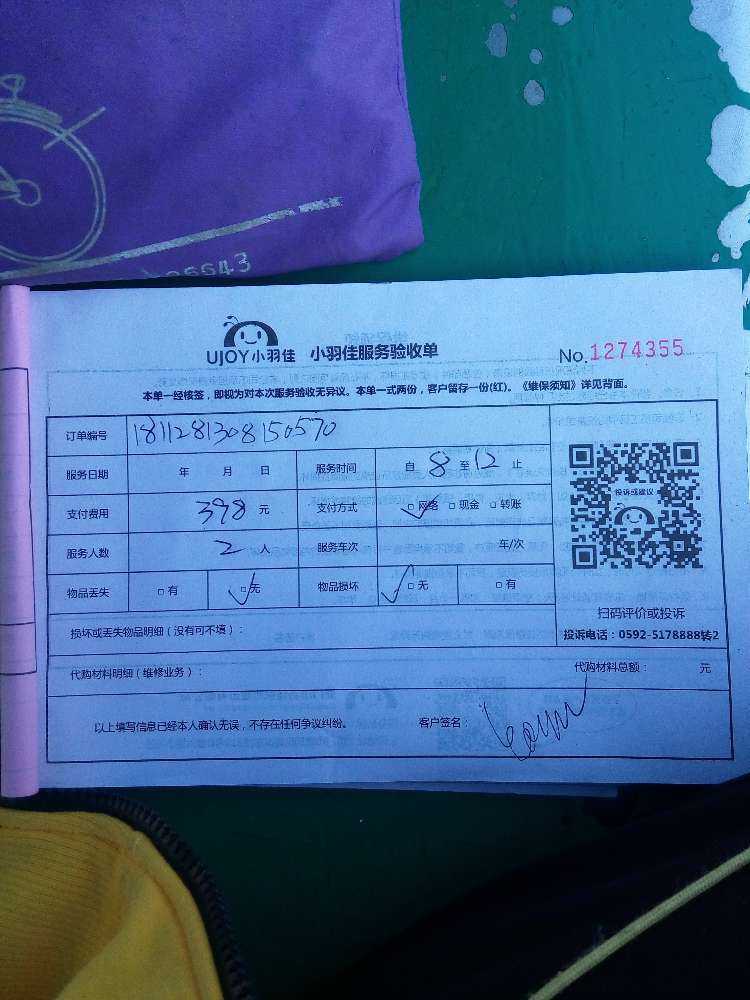 35643
UJOY小羽佳 小羽佳服务验收单 No.1274355
本单一经核签，即视为对本次服务验收无异议。本单一式两份，客户留存一份(红)。《维保须知》详见背面。
订单编号 1811281308150570
服务日期 年 月 日 服务时间 自 8 至 12 止
支付费用 398 元 支付方式 □网络 □现金 □转账
投诉或建议
服务人数 2 人 服务车次 车/次
物品丢失 □有 □无 物品损坏 □无 □有
扫码评价或投诉
损坏或丢失物品明细（没有可不填）： 投诉电话：0592-5178888转2
代购材料明细（维修业务）： 代购材料总额： 元
以上填写信息已经本人确认无误，不存在任何争议纠纷。 客户签名：